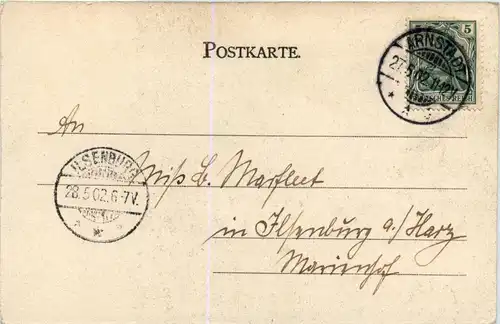 POSTKARTE.
5
ARNSTADT
27.5.02.
An
ILSENBURG
28.5.02.6-7V.
Miß E. Marfleet
in Ilsenburg a./Harz
Marienhof